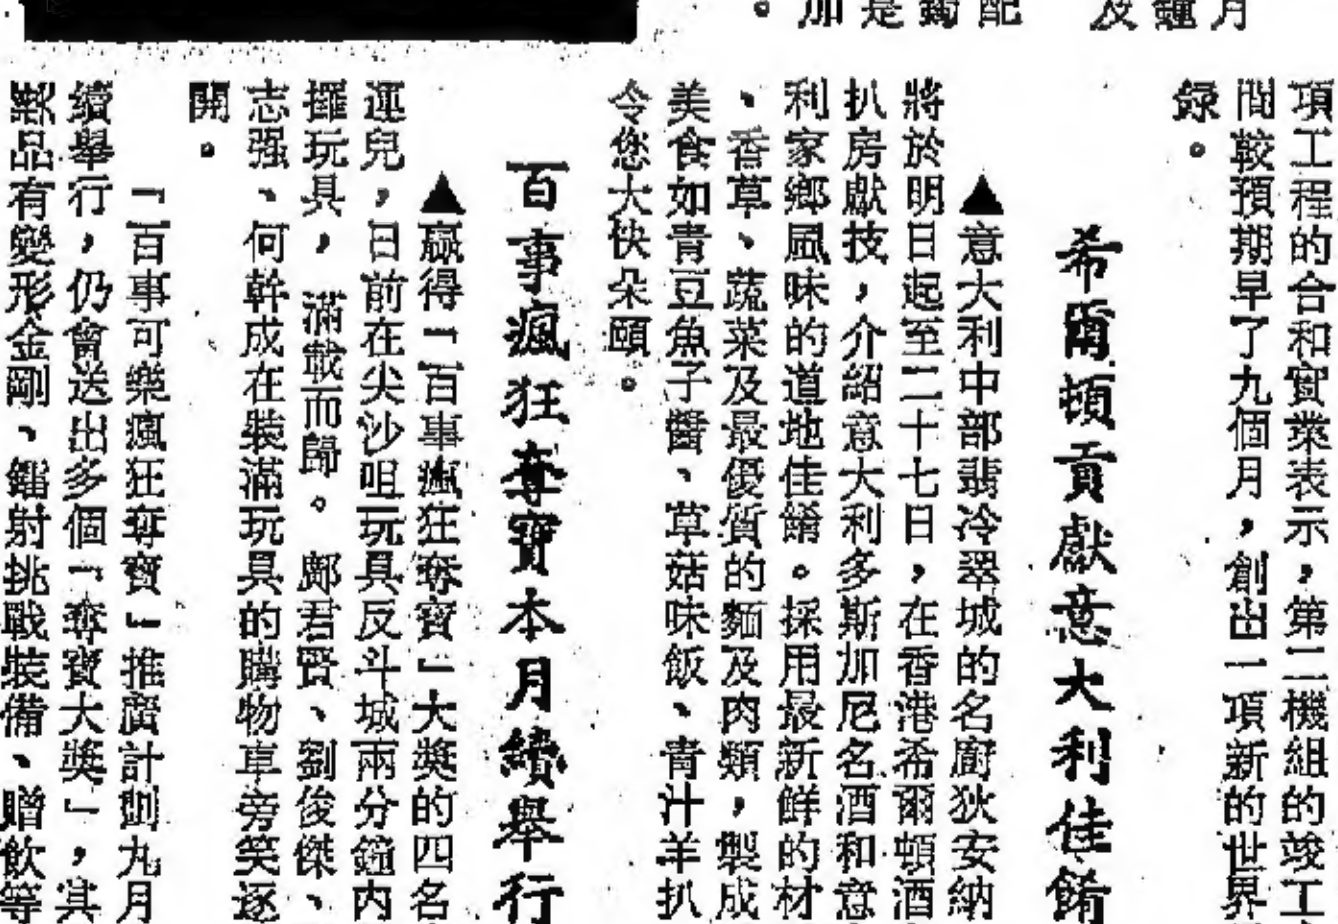 月
鐘
及
配
是
加。
項工程的合和實業表示，第二機組的竣工
間較預期早了九個月，創出一項新的世界
錄。
希爾頓貢獻意大利佳餚
▲意大利中部翡冷翠城的名廚狄安納
將於明日起至二十七日，在香港希爾頓酒
扒房獻技，介紹意大利多斯加尼名酒和意
利家鄉風味的道地佳餚。採用最新鮮的材
、香草、蔬菜及最優質的麵及肉類，製成
美食如青豆魚子醬、草菇味飯、青汁羊扒
令您大快朵頤。
百事瘋狂奪寶本月續舉行
▲贏得「百事瘋狂奪寶」大獎的四名
運兒，日前在尖沙咀玩具反斗城兩分鐘內
攞玩具，滿載而歸。鄺君賢、劉俊傑、
志强、何幹成在裝滿玩具的購物車旁笑逐
開。
「百事可樂瘋狂奪寶」推廣計劃九月
續舉行，仍會送出多個「奪寶大獎」，其
獎品有變形金剛、鐳射挑戰裝備、贈飲等